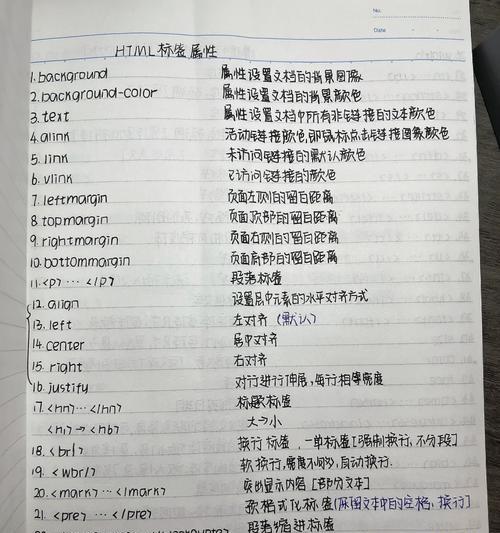 No.
Date
HTML标签属性
1.background 属性设置文档的背景图像
2.background-color 属性设置文档的背景颜色
3.text 属性设置文档中所有非链接的文本颜色
4.alink 活动链接颜色,即鼠标点击链接图象颜色
5.link 未访问链接的默认颜色
6.vlink 已访问链接的颜色
7.leftmargin 页面左侧的留白距离
8.topmargin 页面顶部的留白距离
9.rightmargin 页面右侧的留白距离
10.bottommargin 页面肩部的留白距离
11.<p>…</p> 段落标签
12.align 设置居中元素的水平对齐方式
13.left 左对齐(默认)
14.center 居中对齐
15.right 右对齐
16.justify 对行进行伸展,每行相等宽度
17.<hn>…</hn> 标题标签
<h1>→<h6> 大→小
18.<br/> 换行标签,一单标签[强制换行,不分段]
19.<wbr/> 软换行,宽度不够,自动换行.
20.<mark>…</mark> 突出显示内容[部分文本]
21.<pre>…</pre> 预格式化标签(原留文本中的空格,换行)
段落缩进标签